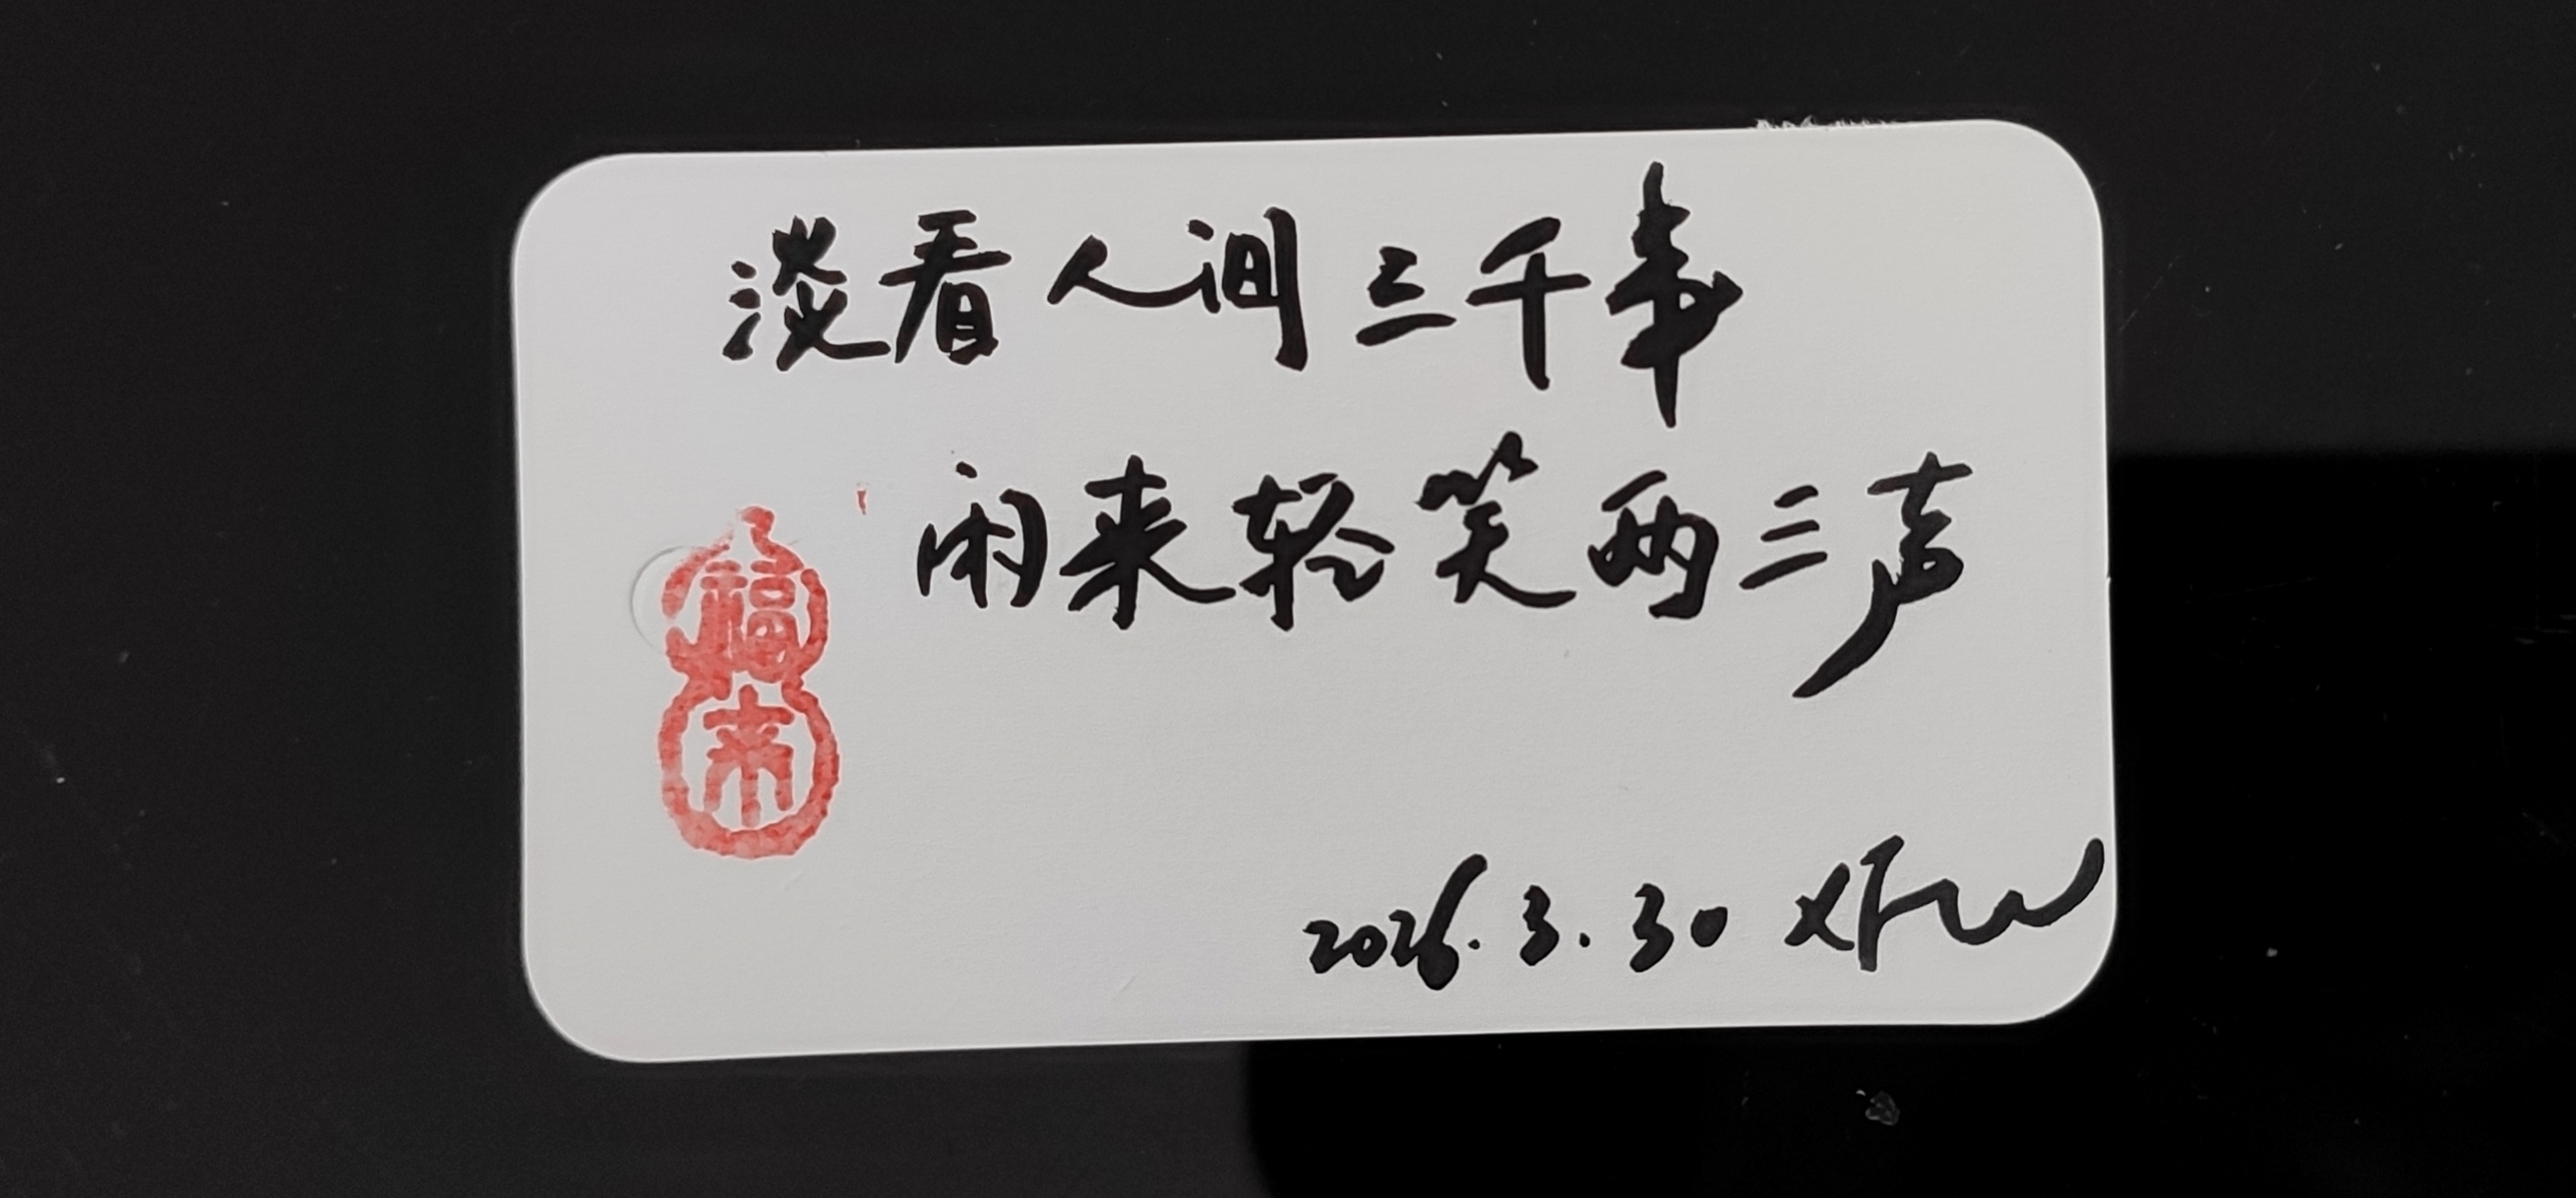 淡看人间三千事
闲来轻笑两三声
福
来
2026.3.30 XFW